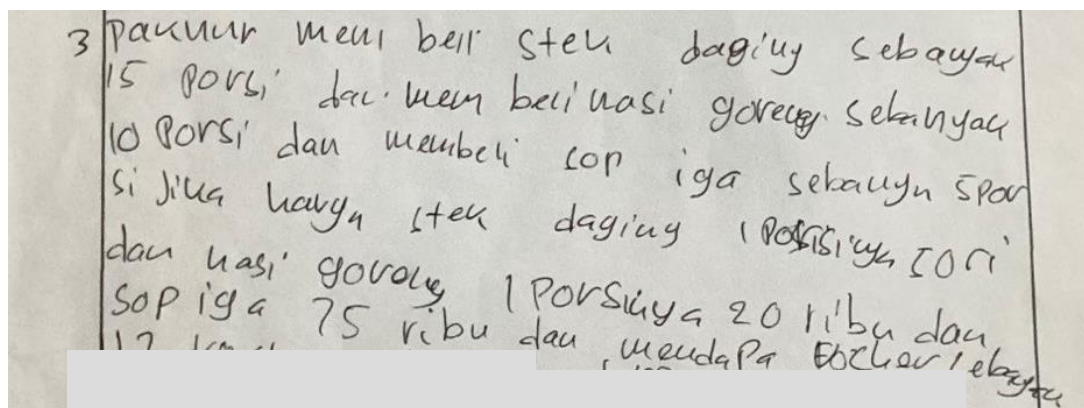 3 Paknur mem beli stek daging sebanyak
15 porsi dan mem beli nasi goreng sebanyak
10 Porsi dan membeli sop iga sebanyn 5 por
si Jika harga stek daging 1 Porsinya 50 ri
dan nasi goreng 1 Porsinya 20 ribu dan
Sop iga 75 ribu dan mendapa sebanyak